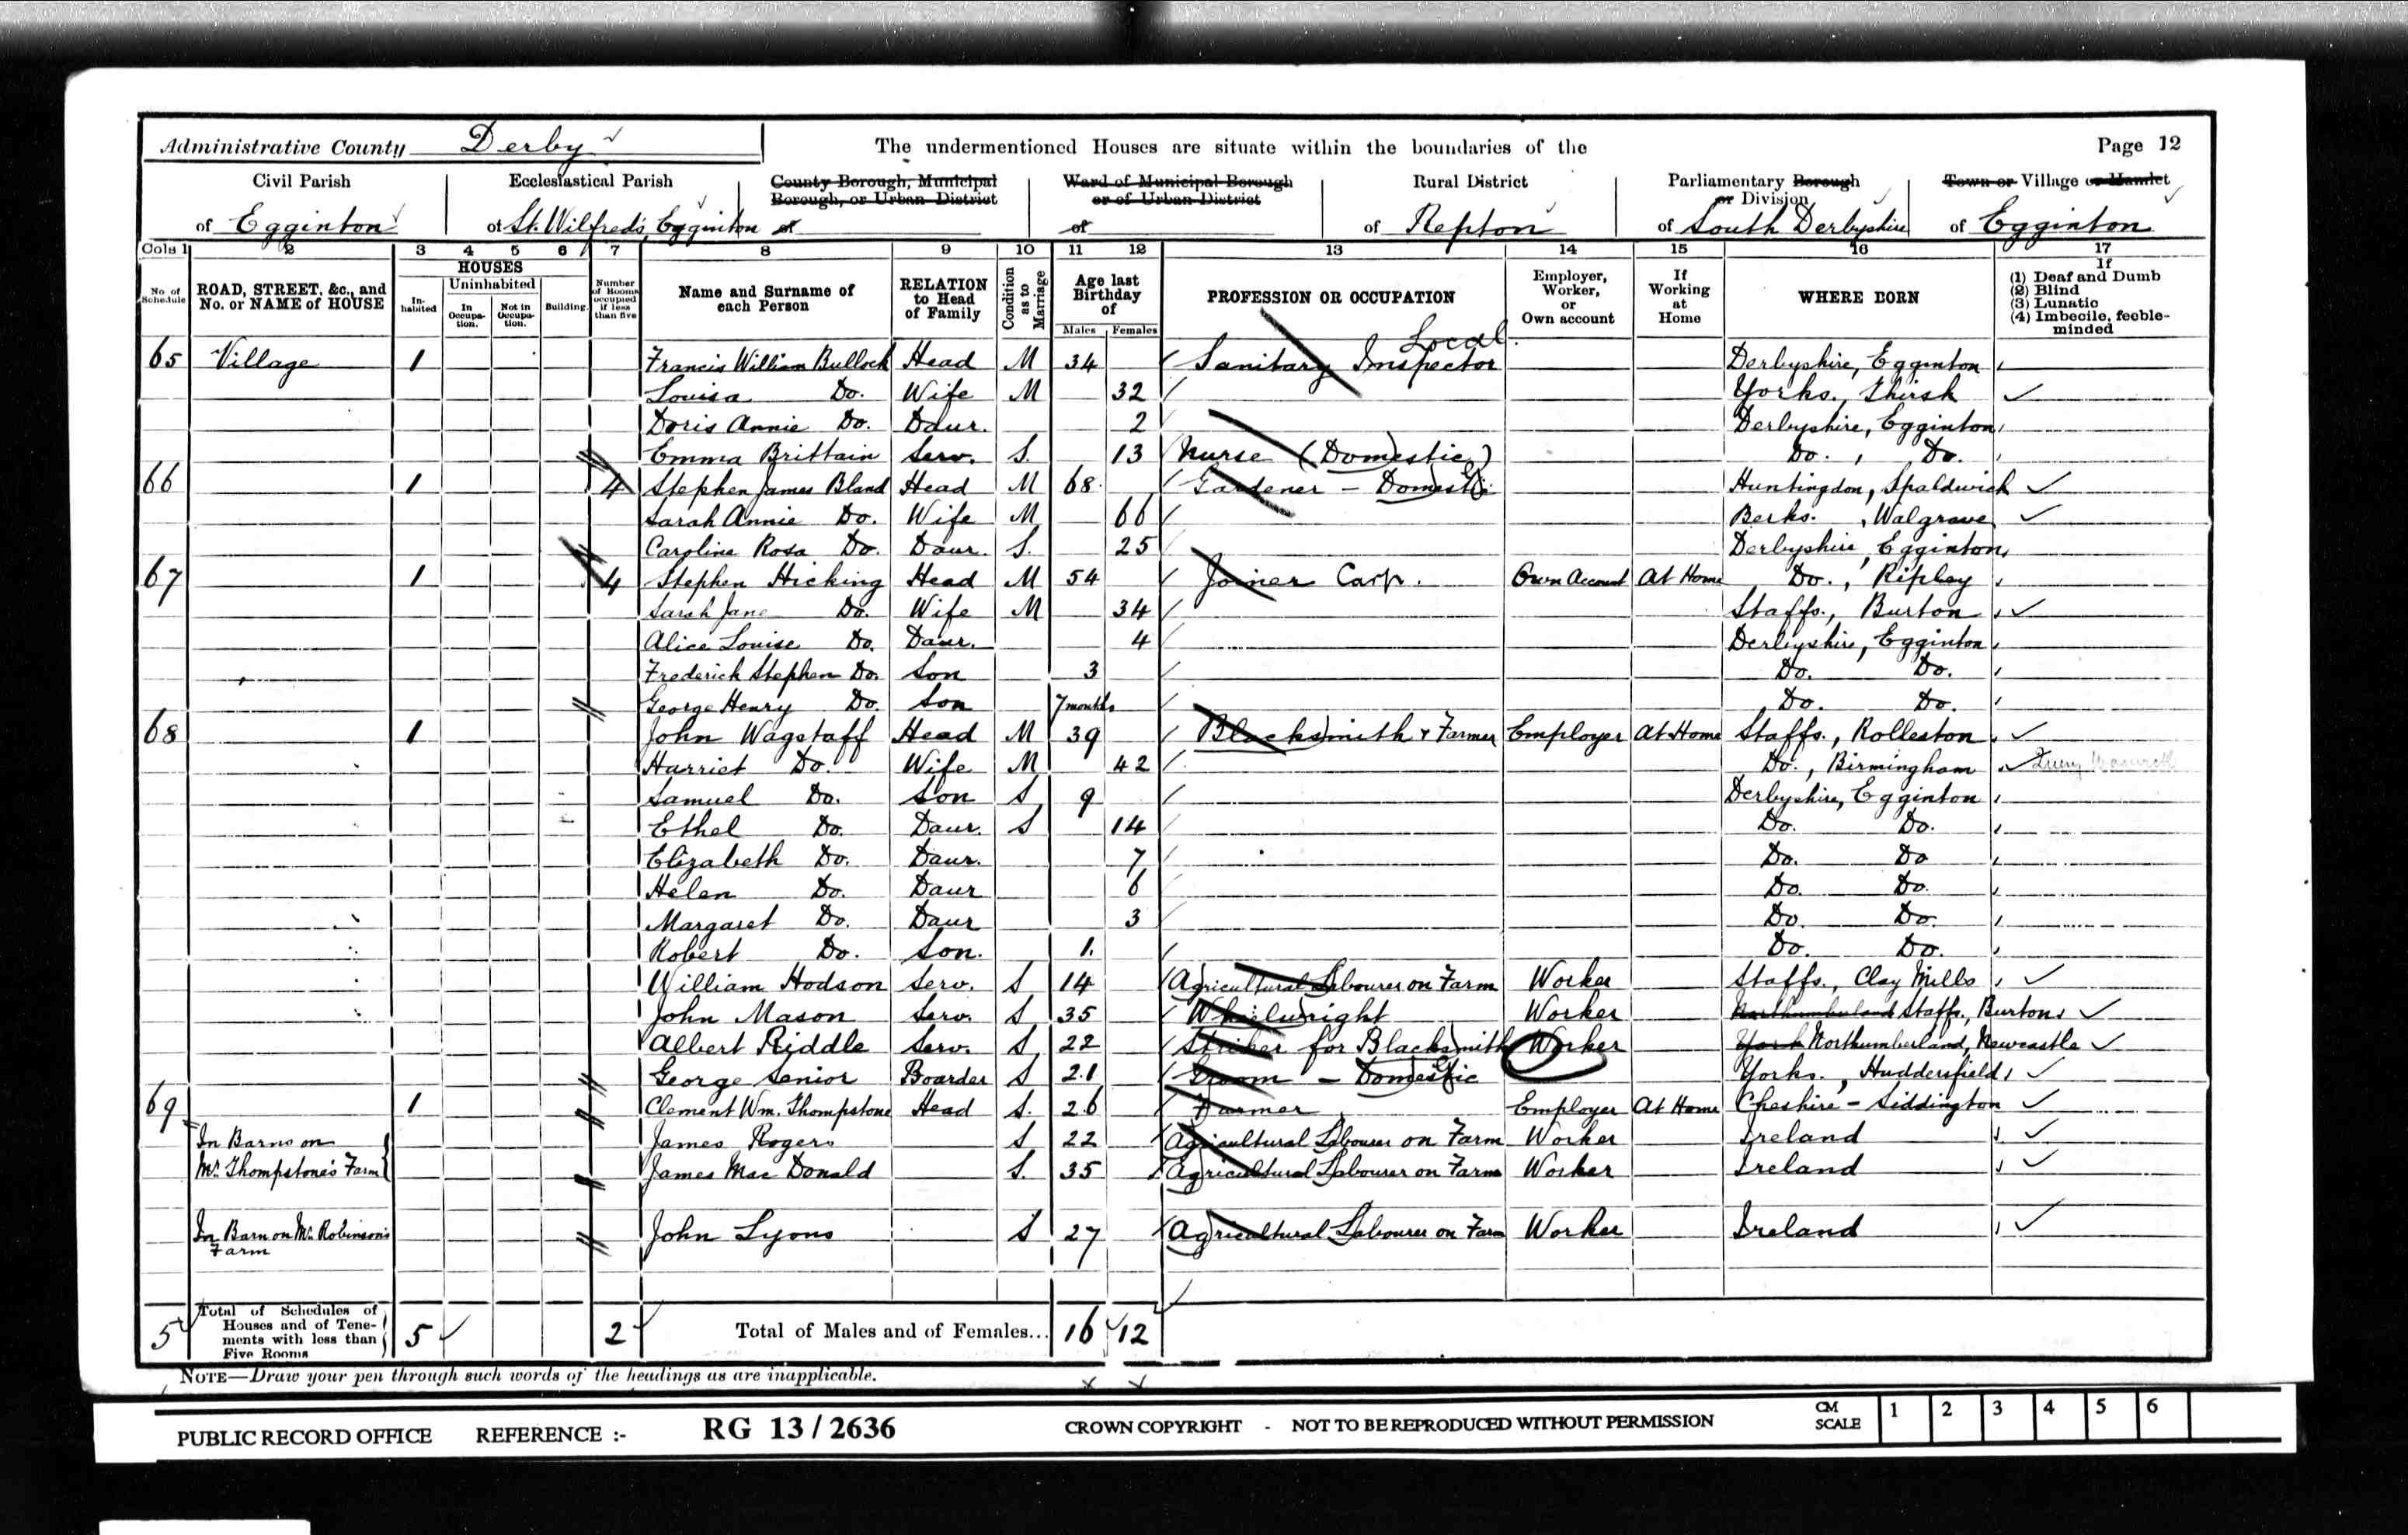 Administrative County Derby The undermentioned Houses are situate within the boundaries of the Page 12
Civil Parish Ecclesiastical Parish County Borough, Municipal Borough, or Urban District Ward of Municipal Borough or of Urban District Rural District Parliamentary Borough or Division Town or Village or Hamlet
of Egginton of St. Wilfred's, Egginton of of of Repton of South Derbyshire of Egginton
Cols 1 2 3 4 5 6 7 8 9 10 11 12 13 14 15 16 17
No. of Schedule ROAD, STREET, &c., and No. or NAME of HOUSE HOUSES Inhabited Uninhabited In Occupation. Not in Occupation. Building. Number of Rooms occupied if less than five Name and Surname of each Person RELATION to Head of Family Condition as to Marriage Age last Birthday of Males Females PROFESSION OR OCCUPATION Employer, Worker, or Own account If Working at Home WHERE BORN If (1) Deaf and Dumb (2) Blind (3) Lunatic (4) Imbecile, feeble-minded
65 Village 1 Francis William Bullock Head M 34 Sanitary Inspector Local Derbyshire, Egginton
Louisa Do. Wife M 32 Yorks., Thirsk
Doris Annie Do. Daur. 2 Derbyshire, Egginton
Emma Brittain Serv. S. 13 Nurse (Domestic) Do., Do.
66 1 4 Stephen James Bland Head M 68 Gardener - Domestic Huntingdon, Spaldwick
Sarah Annie Do. Wife M 66 Berks., Walgrave
Caroline Rosa Do. Daur. S. 25 Derbyshire, Egginton
67 1 4 Stephen Hicking Head M 54 Joiner Carp. Own Account At Home Do., Ripley
Sarah Jane Do. Wife M 34 Staffs., Burton
Alice Louise Do. Daur. 4 Derbyshire, Egginton
Frederick Stephen Do. Son 3 Do. Do.
George Henry Do. Son 7 months Do. Do.
68 1 John Wagstaff Head M 39 Blacksmith & Farmer Employer At Home Staffs., Rolleston
Harriet Do. Wife M 42 Do., Birmingham
Samuel Do. Son S 9 Derbyshire, Egginton
Ethel Do. Daur. S 14 Do. Do.
Elizabeth Do. Daur. 7 Do. Do
Helen Do. Daur 6 Do. Do.
Margaret Do. Daur 3 Do. Do.
Robert Do. Son. 1. Do. Do.
William Hodson Serv. S 14 Agricultural Labourer on Farm Worker Staffs., Clay Mills
John Mason Serv. S 35 Wheelwright Worker Northumberland Staffs., Burton
Albert Riddle Serv. S 22 Striker for Blacksmith Worker York Northumberland, Newcastle
George Senior Boarder S 21 Groom - Domestic Yorks., Huddersfield
69 1 Clement Wm. Thompstone Head S. 26 Farmer Employer At Home Cheshire - Siddington
In Barns on James Rogers S 22 Agricultural Labourer on Farm Worker Ireland
Mr. Thompstone's Farm James Mac Donald S. 35 Agricultural Labourer on Farm Worker Ireland
In Barn on Mr. Robinson's Farm John Lyons S 27 Agricultural Labourer on Farm Worker Ireland
5 Total of Schedules of Houses and of Tenements with less than Five Rooms 5 2 Total of Males and of Females... 16 12
NOTE—Draw your pen through such words of the headings as are inapplicable.
PUBLIC RECORD OFFICE REFERENCE :- RG 13 / 2636 CROWN COPYRIGHT - NOT TO BE REPRODUCED WITHOUT PERMISSION CM SCALE 1 2 3 4 5 6